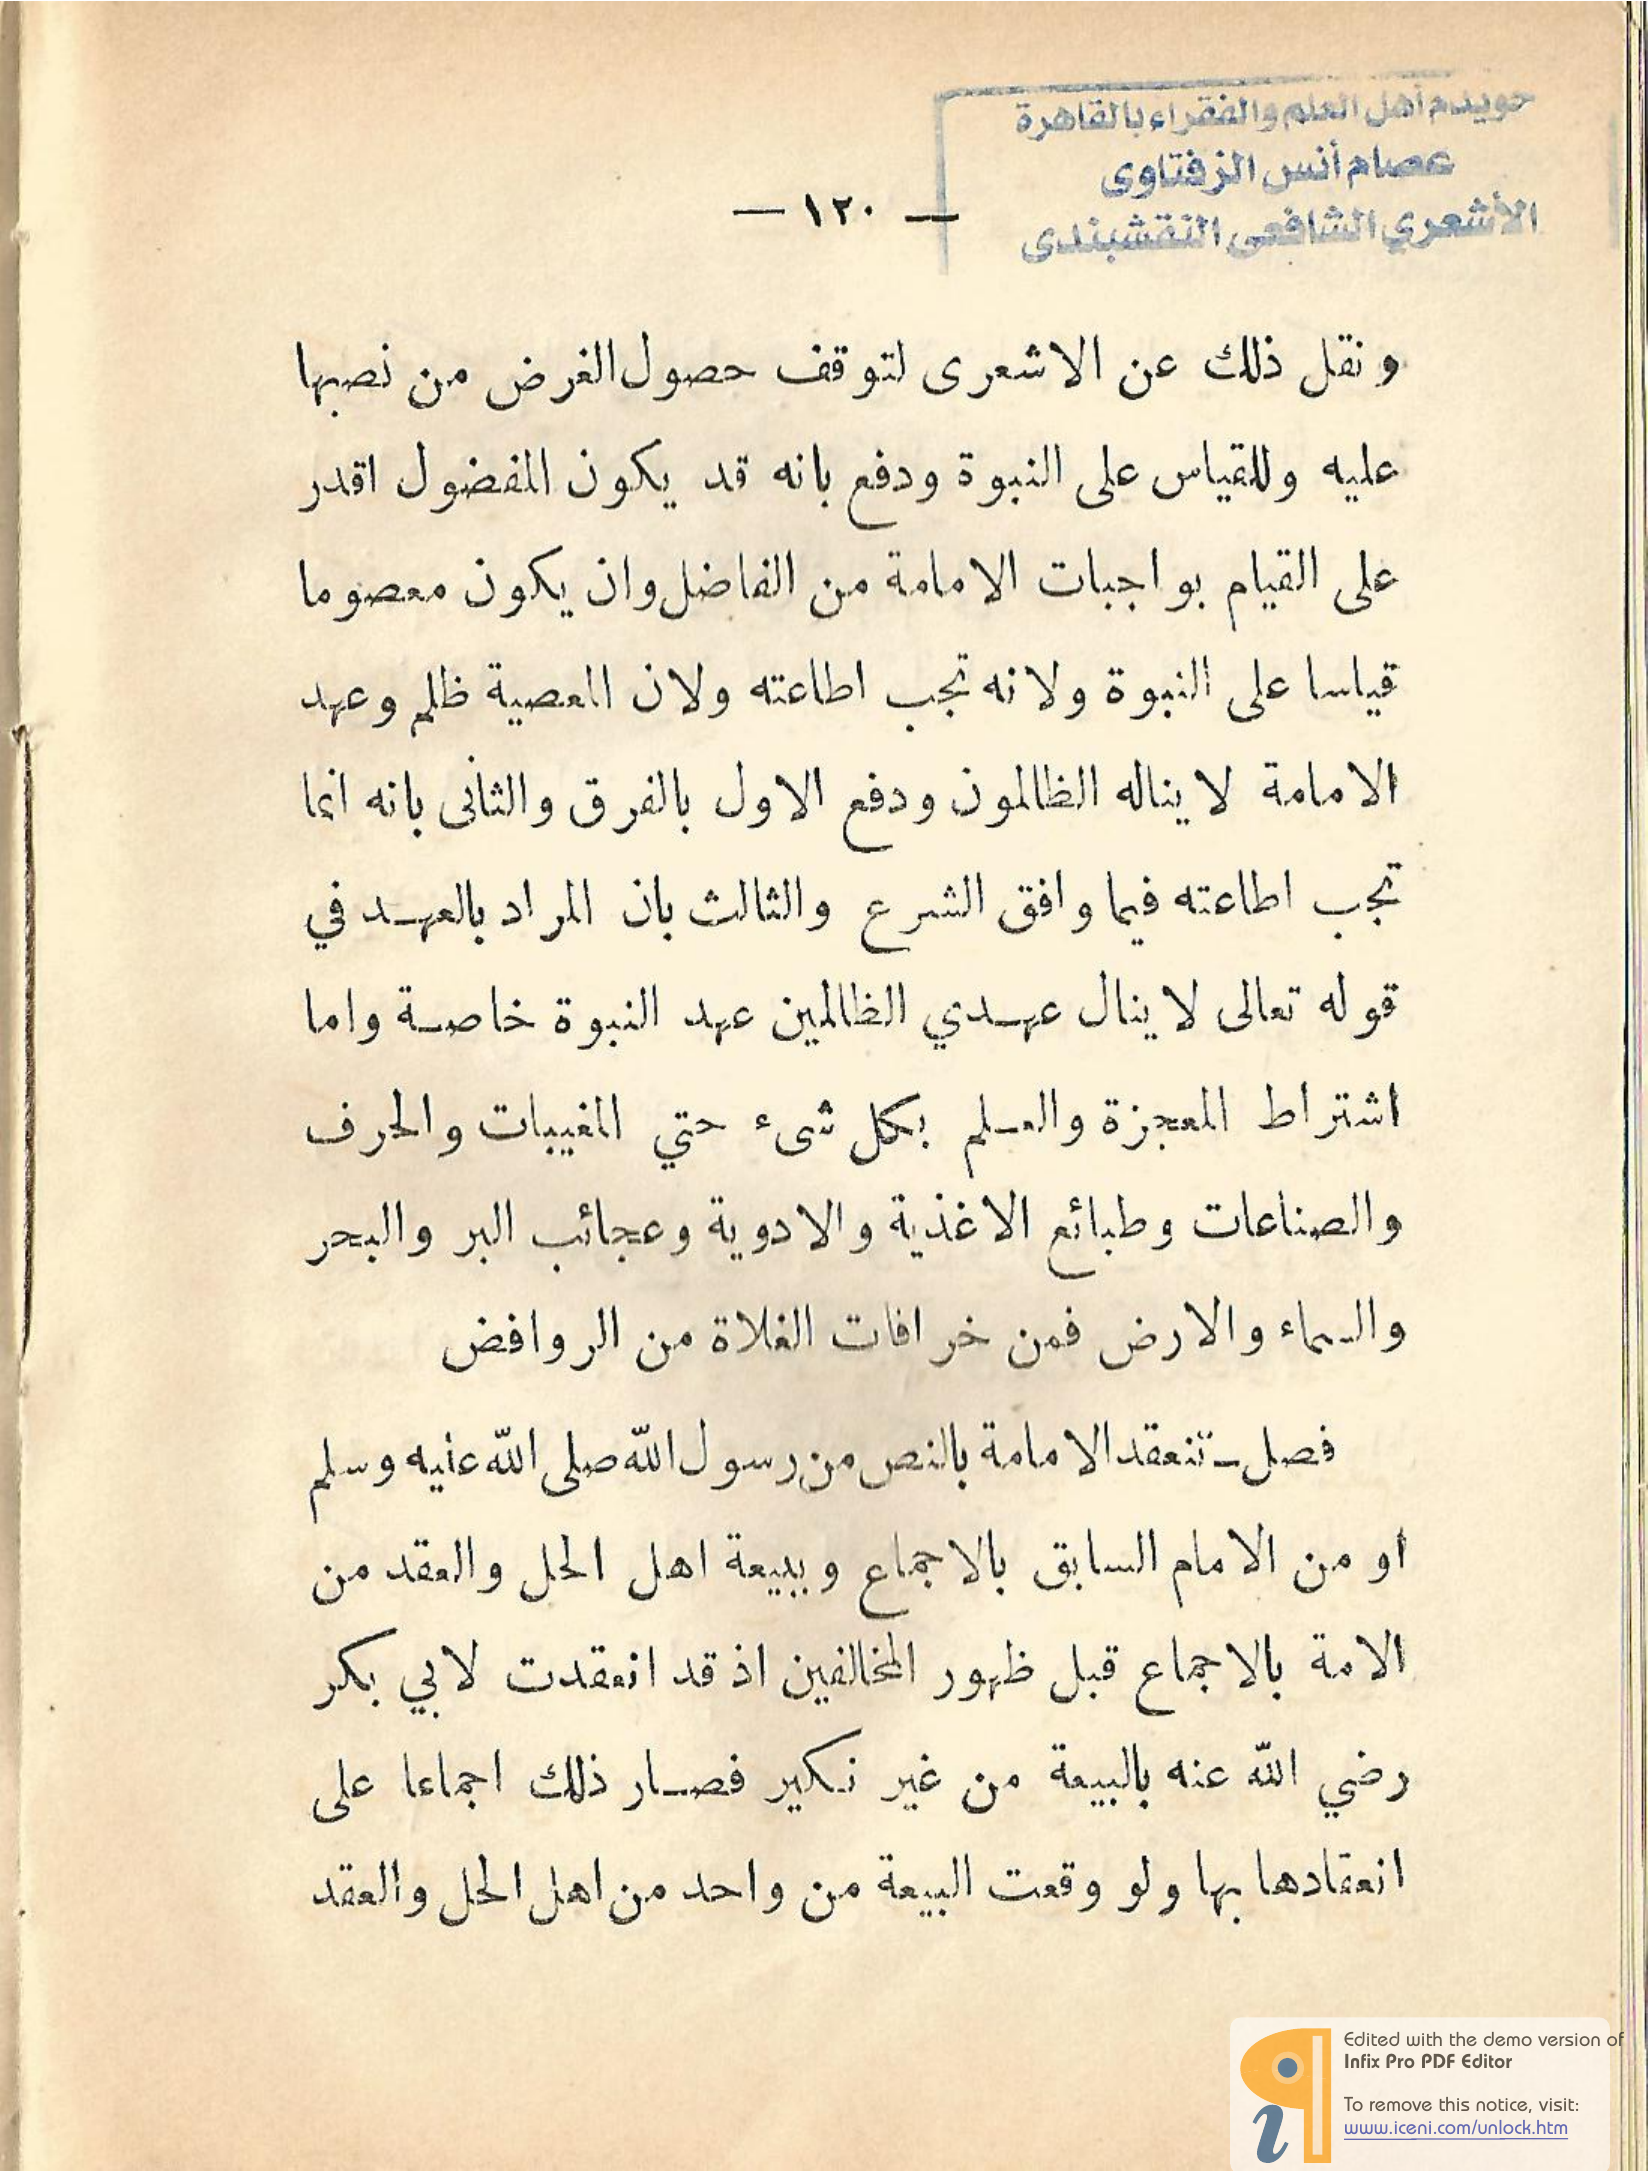 خويدم أهل العلم والفقراء بالقاهرة
عصام أنس الزفتاوى
الأشعري الشافعى النقشبندى
— ١٢٠ —
ونقل ذلك عن الاشعرى لتوقف حصول الغرض من نصبها
عليه وللقياس على النبوة ودفع بانه قد يكون المفضول اقدر
على القيام بواجبات الامامة من الفاضل وان يكون معصوما
قياسا على النبوة ولانه تجب اطاعته ولان المعصية ظلم وعهد
الامامة لا يناله الظالمون ودفع الاول بالفرق والثانى بانه انما
تجب اطاعته فيما وافق الشرع والثالث بان المراد بالعهـد في
قوله تعالى لا ينال عهـدي الظالمين عهد النبوة خاصـة واما
اشتراط المعجزة والعـلم بكل شىء حتي المغيبات والحرف
والصناعات وطبائع الاغذية والادوية وعجائب البر والبحر
والسماء والارض فمن خرافات الغلاة من الروافض
فصل ـ تنعقد الامامة بالنص من رسول الله صلى الله عليه وسلم
او من الامام السابق بالاجماع وببيعة اهل الحل والعقد من
الامة بالاجماع قبل ظهور المخالفين اذ قد انعقدت لابي بكر
رضي الله عنه بالبيعة من غير نـكير فصـار ذلك اجماعا على
انعقادها بها ولو وقعت البيعة من واحد من اهل الحل والعقد
Edited with the demo version of
Infix Pro PDF Editor
To remove this notice, visit:
www.iceni.com/unlock.htm